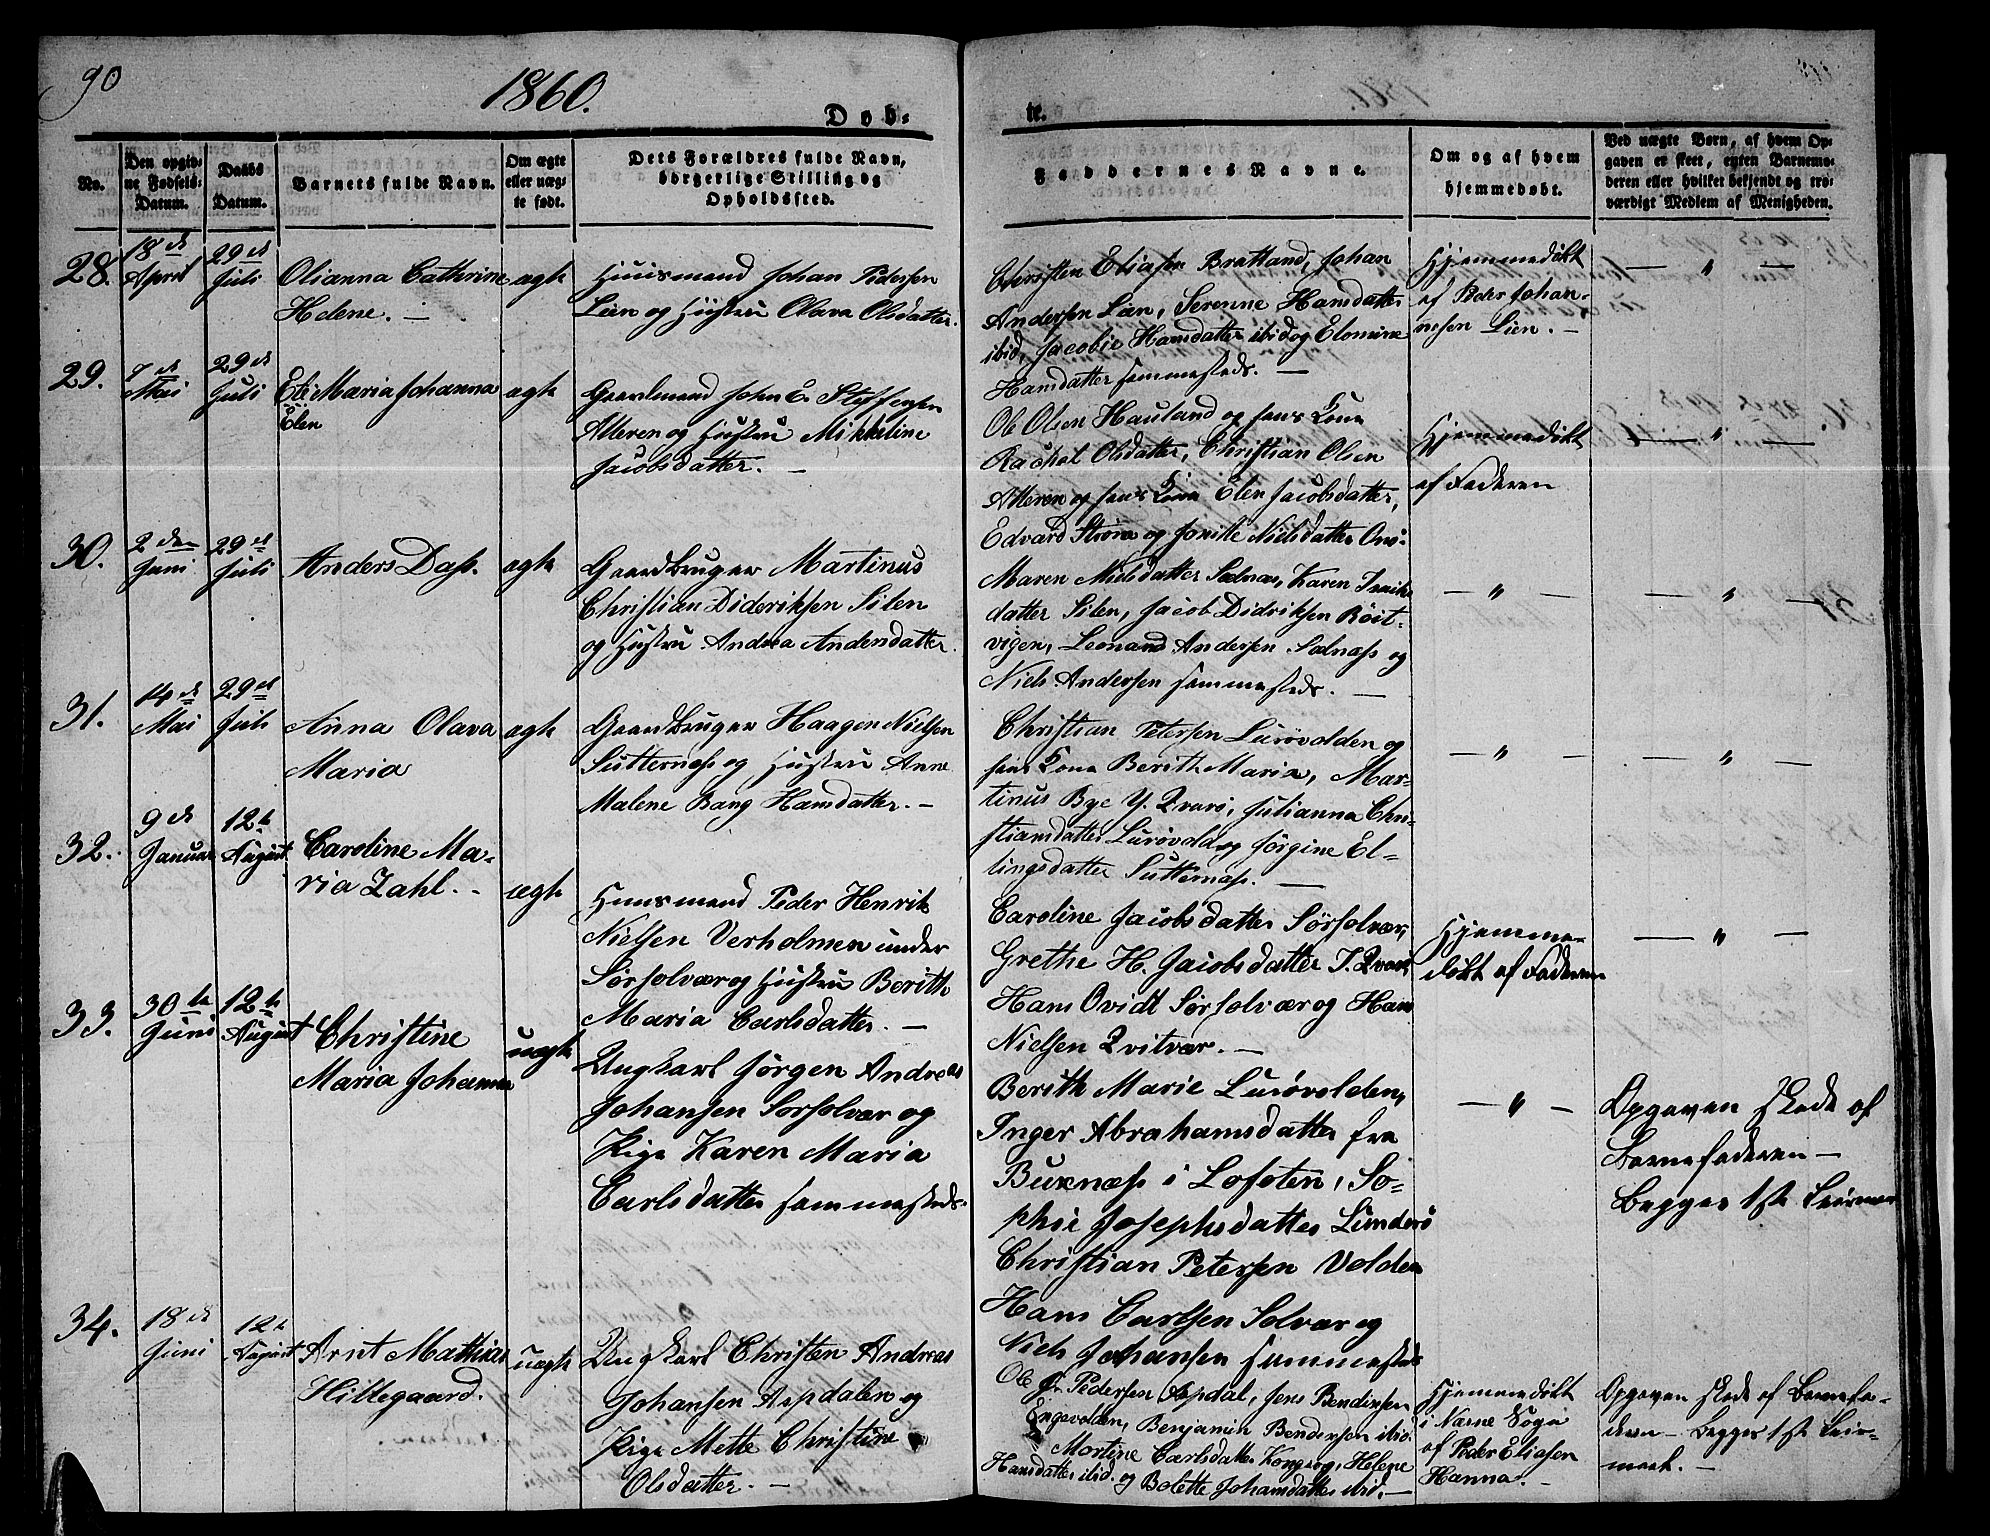 90
1860.
Døb-
te.
No.
Den opgiv-
ne Fødsels-
Datum.
Daabs
Datum.
Barnets fulde Navn.
Om ægte
eller uæg-
te født.
Dets Forældres fulde Navn,
borgerlige Stilling og
Opholdssted.
Faddernes Navne.
Om og af hvem
hjemmedøbt.
Ved uægte Børn, af hvem Op-
gaven er skeet, enten Barnemo-
deren eller hvilket bekjendt og tro-
værdigt Medlem af Menigheden.
28.
18de
April
29de
Juli
Olianna Cathrine
Helene. —
ægte
Huusmand Johan Pedersen
Lien og Hustru Olava Olsdatter.
Christen Eliassen Bratland, Johan
Andersen Lien, Serenne Hansdatter
ibid, Jacobie Hansdatter ibid og Elomine
Hansdatter sammesteds. —
Hjemmedøbt
af Peder Johan-
nesen Lien. —
— " —
29.
7de
Mai
29de
Juli
Eli Maria Johanna
Elen
ægte
Gaardmand John E. Steffensen
Alteren og Hustru Mikkeline
Jacobsdatter. —
Ole Olsen Hauland og hans Kone
Rachel Olsdatter, Christian Olsen
Alteren og hans Kone Elen Jacobsdatter,
Edvard Strøm og Jonette Nielsdatter
Hjemmedøbt
af Faderen
— " —
30.
2den
Juni
29de
Juli
Anders Dass.
ægte
Gaardbruger Martinus
Christian Dideriksen Silen
og Hustru Andrea Andersdatter.
Maren Nielsdatter Selnæs, Karen
datter Silen, Jacob Didriksen Røit-
vigen, Leonard Andersen Selnæs og
Niels Andersen sammesteds. —
— " —
— " —
31.
14de
Mai
29de
Juli
Anna Olava
Maria
ægte
Gaardbruger Haagen Nielsen
Sutternæs og Hustru Anne
Malene Bang Hansdatter. —
Christian Petersen Lurøvolden og
hans Kone Berith Maria, Mar-
tinus Bye Y. Qvarø, Julianna Chri-
stiansdatter Lurøvold og Jørgine El-
lingsdatter Sutternæs. —
— " —
— " —
32.
9de
Januar
12te
August
Caroline Ma-
ria Zahl. —
ægte
Huusmand Peder Henrik
Nielsen Verholmen under
Sørsolvær og Hustru Berith
Maria Carlsdatter. —
Caroline Jacobsdatter Sørsolvær,
Grethe H. Jacobsdatter I. Qvarø,
Hans Ovidt Sørsolvær og Hans
Nielsen Qvitvær. —
Hjemme-
døbt af Faderen
— " —
33.
30te
Juni
12te
August
Christine
Maria Johanna
uægte
Ungkarl Jørgen Andreas
Johansen Sørsolvær og
Pige Karen Maria
Carlsdatter sammesteds.
Berith Marie Lurøvolden,
Inger Abrahamsdatter fra
Buxnæs i Lofoten, So-
phie Josephsdatter Lunderø
Christian Petersen Volden
Hans Carlsen Solvær og
Niels Johansen sammesteds
— " —
Opgaven skede af
Barnefaderen —
Begges 1ste Leiermaal
34.
18de
Juni
12te
August
Arnt Mathias
Hillegaard.
uægte
Ungkarl Christen Andreas
Johansen Aspdalen og
Pige Mette Christine
Olsdatter. —
Ole Jr. Pedersen Aspdal, Jens Bendixsen
Engevolden, Benjamin Bendixsen ibid.
Mortine Carlsdatter Kongsvg, Helene
Hansdatter ibid. og Bolette Johansdatter ibid. —
Hjemmedøbt
i Nærne Sogn
af Peder Eliasen
Hanna. —
Opgaven skede af Barnefa-
deren — Begges 1ste Leier-
maal. —